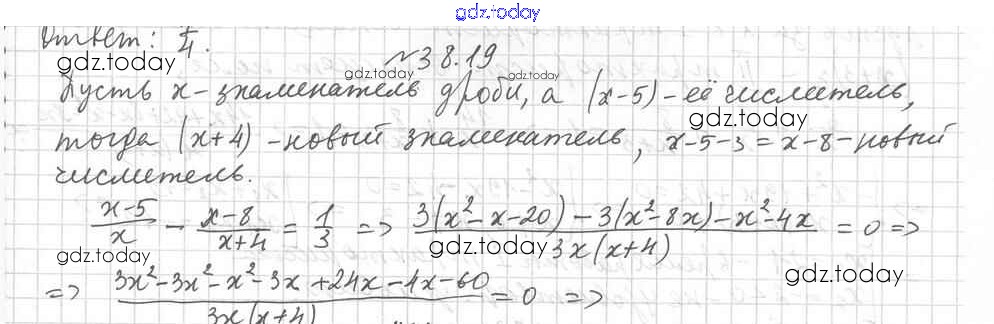 gdz.today
Ответ: 5/4.
gdz.today
№38.19
gdz.today gdz.today
Пусть x - знаменатель дроби, а (x-5) - её числитель,
gdz.today
тогда (x+4) - новый знаменатель, x-5-3 = x-8 - новый
числитель.
(x-5)/x - (x-8)/(x+4) = 1/3 => (3(x²-x-20)-3(x²-8x)-x²-4x)/(3x(x+4)) = 0 =>
gdz.today gdz.today
gdz.today
=> (3x²-3x²-x²-3x+24x-4x-60)/(3x(x+4)) = 0 =>